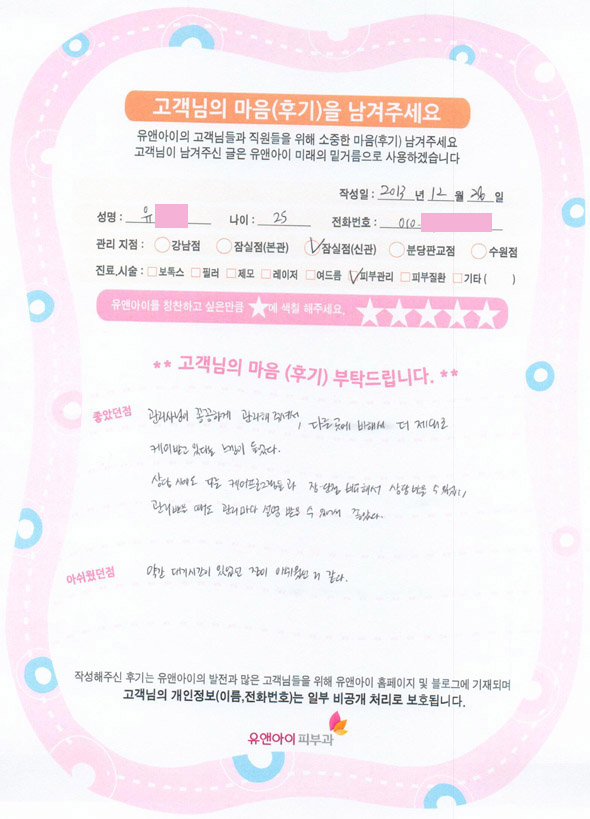 고객님의 마음(후기)을 남겨주세요
유앤아이의 고객님들과 직원들을 위해 소중한 마음(후기) 남겨주세요
고객님이 남겨주신 글은 유앤아이 미래의 밑거름으로 사용하겠습니다
작성일 : 2013 년 12 월 26 일
성명 : 유 나이 : 25 전화번호 : 010-
관리 지점 : 강남점 잠실점(본관) 잠실점(신관) 분당판교점 수원점
진료,시술 : 보톡스 필러 제모 레이저 여드름 피부관리 피부질환 기타 ( )
유앤아이를 칭찬하고 싶은만큼 ★에 색칠 해주세요. ★★★★★
** 고객님의 마음 (후기) 부탁드립니다. **
좋았던점 관리사님이 꼼꼼하게 관리해 주셔서, 다른곳에 비해서 더 제대로
케어받고 있다는 느낌이 들었다.
상담 시에도 케어프로그램들과 장·단점 비교해서 상담 받을 수 있었고,
관리받을 때도 관리마다 설명 받을 수 있어서 좋았다.
아쉬웠던점 약간 대기시간이 있었던 점이 아쉬웠던 거 같다.
작성해주신 후기는 유앤아이의 발전과 많은 고객님들을 위해 유앤아이 홈페이지 및 블로그에 기재되며
고객님의 개인정보(이름,전화번호)는 일부 비공개 처리로 보호됩니다.
유앤아이 피부과